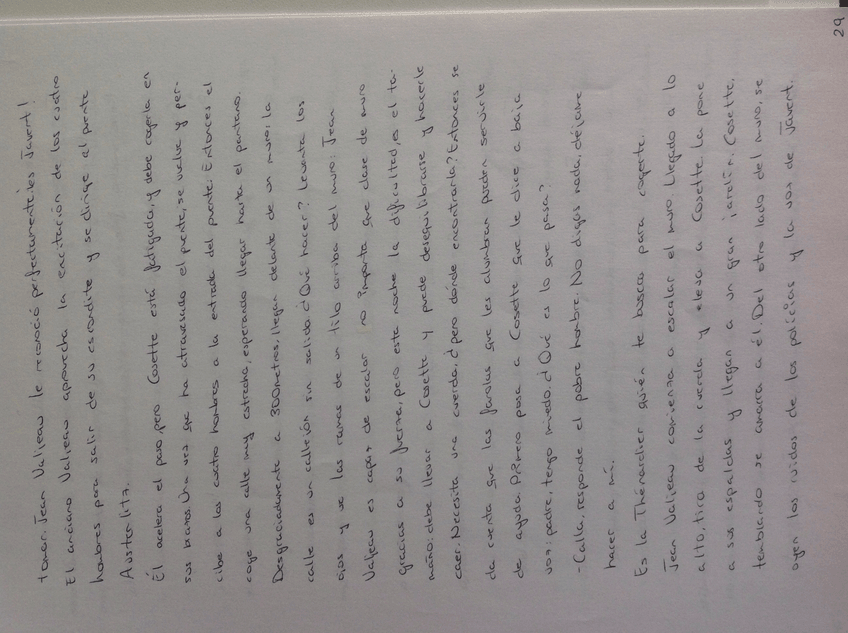 29
tomar. Jean Valjean le reconoció perfectamente: ¡es Javert!
El anciano Valjean aprovecha la excitación de los cuatro
hombres para salir de su escondite y se dirige al puente
Austerlitz.
Él acelera el paso, pero Cosette está fatigada, y debe cogerla en
sus brazos. Una vez que ha atravesado el puente, se vuelve y per-
cibe a los cuatro hombres a la entrada del puente. Entonces él
coge una calle muy estrecha, esperando llegar hasta el pantano.
Desgraciadamente a 300 metros, llegan delante de un muro, la
calle es un callejón sin salida. ¿Qué hacer? Levanta los
ojos y ve las ramas de un tilo arriba del muro: Jean
Valjean es capaz de escalar no importa que clase de muro
gracias a su fuerza, pero esta noche la dificultad, es el ta-
maño: debe llevar a Cosette y puede desequilibrarse y hacerle
caer. Necesita una cuerda, ¿pero dónde encontrarla? Entonces se
da cuenta que las farolas que les alumbran pueden servirle
de ayuda. Primero posa a Cosette que le dice a baja
voz: padre, tengo miedo. ¿Qué es lo que pasa?
- Calla, responde el pobre hombre. No digas nada, déjame
hacer a mí.
Es la Thénardier quién te busca para cogerte.
Jean Valjean comienza a escalar el muro. Llegado a lo
alto, tira de la cuerda y eleva a Cosette. La pone
a sus espaldas y llegan a un gran jardín. Cosette,
temblando se amarra a él. Del otro lado del muro, se
oyen los ruidos de los policías y la voz de Javert.